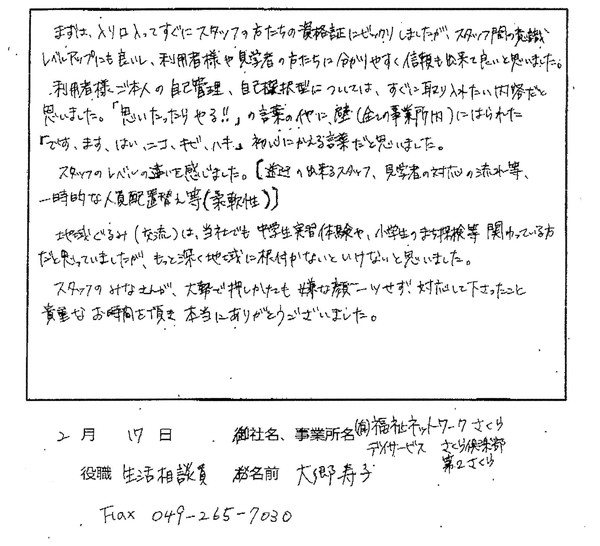 まずは、入り口入ってすぐにスタッフの方たちの資格証にビックリしましたが、スタッフ間の意識
レベルアップにも良いし、利用者様や見学者の方たちに分かりやすく信頼も出来て良いと思いました。
利用者様ご本人の自己管理、自己選択型については、すぐに取り入れたい内容だと
思いました。「思いたったらやる!!」の言葉の他に、壁(全ての事業所内)にはられた
「です、ます、はい、ニコ、キビ、ハキ」初心にかえる言葉だと思いました。
スタッフのレベルの違いを感じました。[ の出来るスタッフ、見学者の対応の流れ等、
一時的な人員配置替え等(柔軟性)]
地域ぐるみ(交流)は、当社でも中学生実習体験や、小学生のまち探検等 関わっている方
だと思っていましたが、もっと深く地域に根付かないといけないと思いました。
スタッフのみなさんが、大勢で押しかけても嫌な顔一つせず対応して下さったこと
貴重なお時間を頂き本当にありがとうございました。
2月 17日 御社名、事業所名 (有)福祉ネットワークさくら
デイサービス さくら倶楽部
第2さくら
役職 生活相談員 お名前 大郷寿子
Fax 049-265-7030